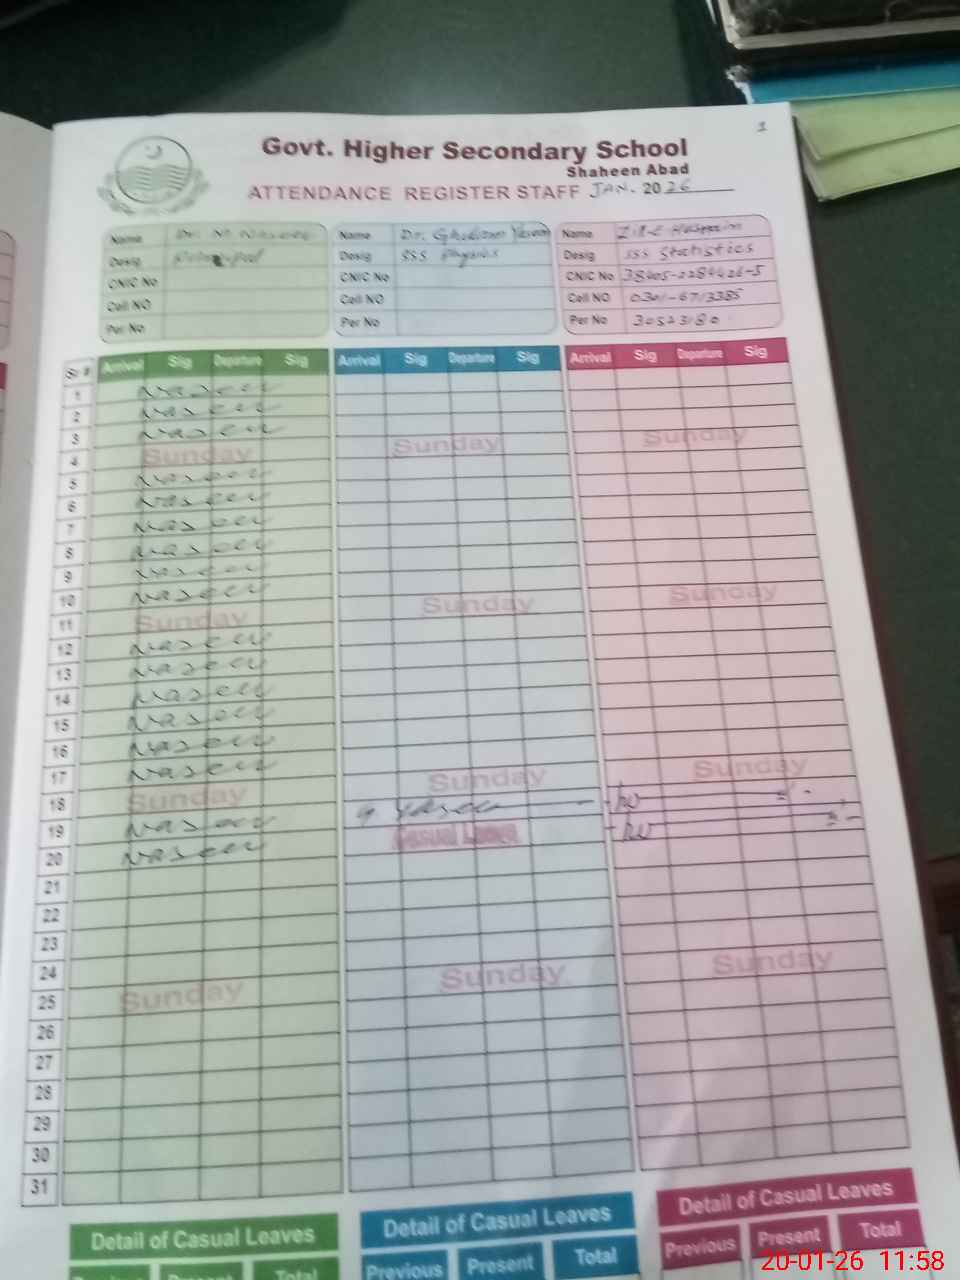 1
Govt. Higher Secondary School
Shaheen Abad
ATTENDANCE REGISTER STAFF JAN. 2026
Name Dr. M. Naseer Name Dr. Ghulam Yaseen Name Z.I.E Hussain
Desig Principal Desig SSS Physics Desig SSS Statistics
CNIC No CNIC No CNIC No 38405-2284426-5
Cell NO Cell NO Cell NO 0301-6713385
Per No Per No Per No 30523180
Sr # Arrival Sig Departure Sig Arrival Sig Departure Sig Arrival Sig Departure Sig
1 Naseer
2 Naseer
3 Naseer
4 Sunday Sunday Sunday
5 Naseer
6 Naseer
7 Naseer
8 Naseer
9 Naseer
10 Naseer
11 Sunday Sunday Sunday
12 Naseer
13 Naseer
14 Naseer
15 Naseer
16 Naseer
17 Naseer
18 Sunday Sunday Sunday
19 Naseer G. Yaseen
20 Naseer Casual Leave
21
22
23
24
25 Sunday Sunday Sunday
26
27
28
29
30
31
Detail of Casual Leaves Detail of Casual Leaves Detail of Casual Leaves
Previous Present Total Previous Present Total Previous Present Total
20-01-26 11:58